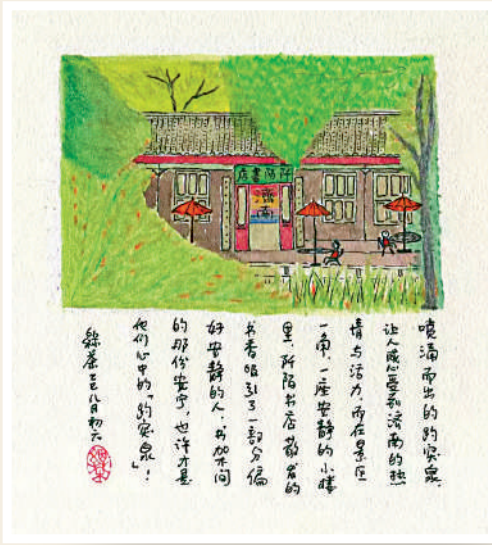 阡陌書店
濟南
喷涌而出的趵突泉,
让人感受到济南的热
情与活力,而在景区
一角,一座安静的小楼
里,阡陌书店散发的
书香吸引了一部分偏
好安静的人,书架间
的那份安宁,也许才是
他们心中的“趵突泉”!
绿茶乙巳八月初六